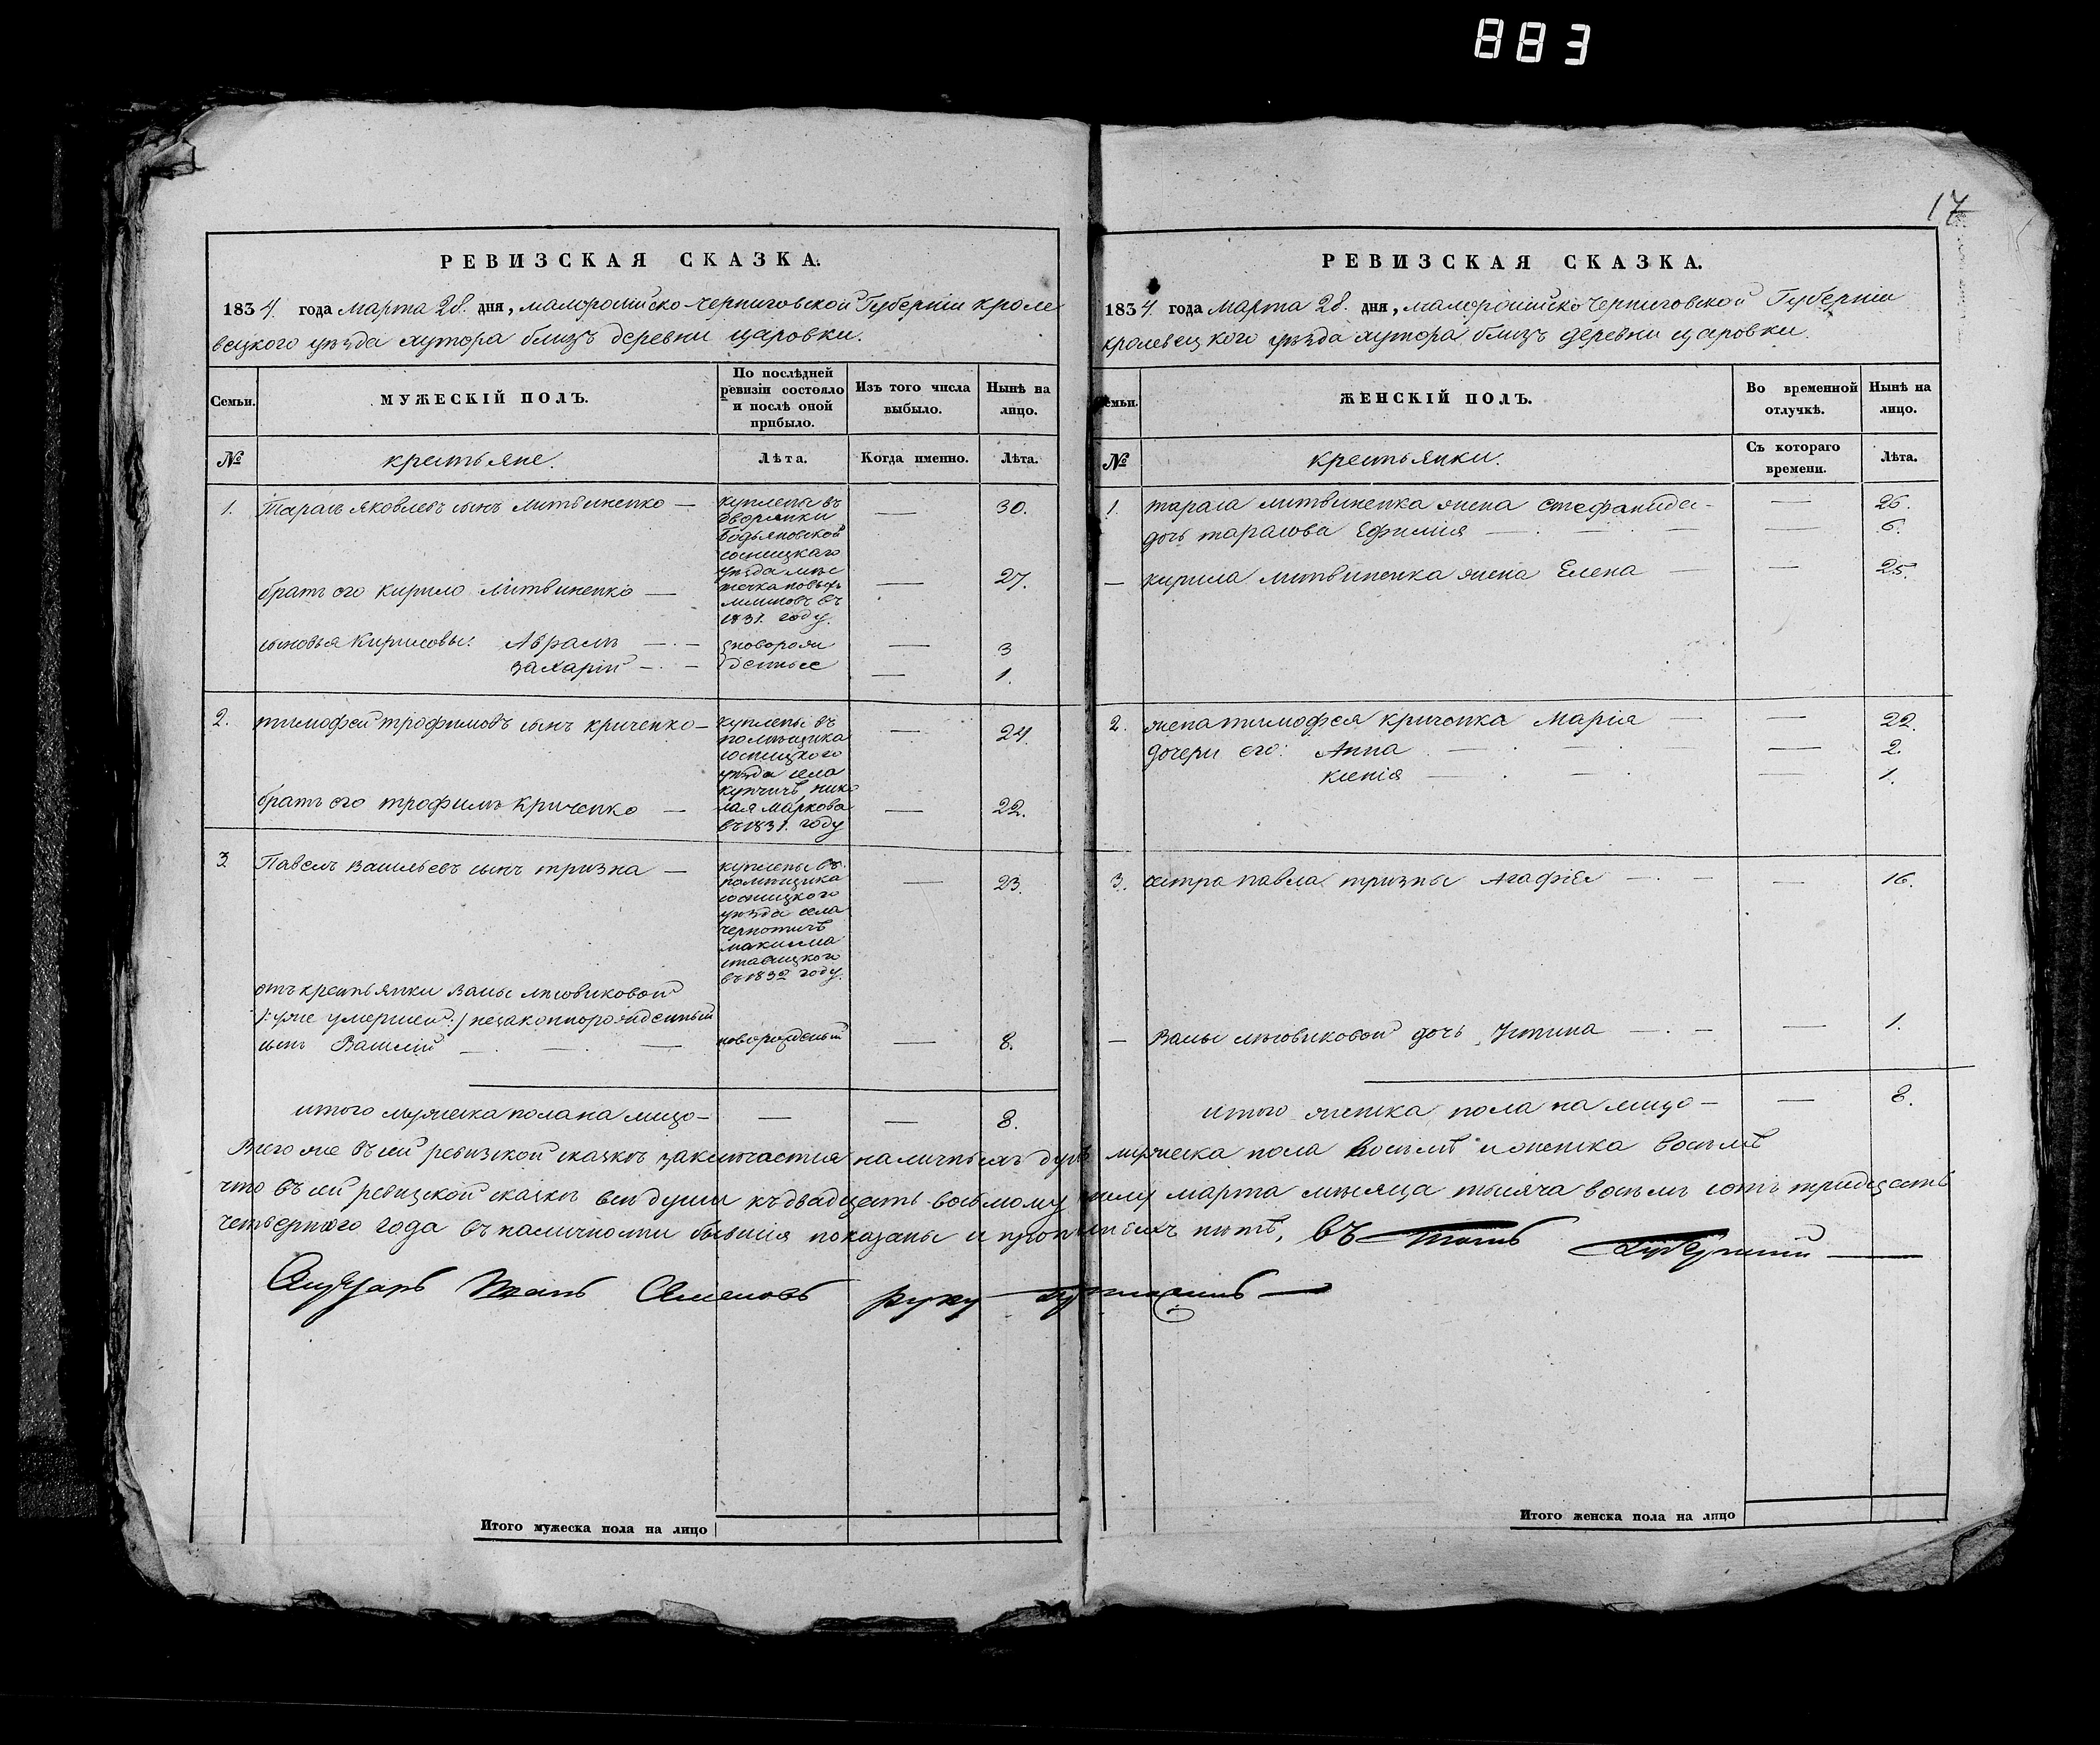 883
17
РЕВИЗСКАЯ СКАЗКА.
1834. года марта 28. дня, малоросійско-черниговской Губерніи кроле
вецкого уѣзда хутора близъ деревни царовки.
Семьи.
МУЖЕСКІЙ ПОЛЪ.
По послѣдней
ревизіи состояло
и послѣ оной
прибыло.
Изъ того числа
выбыло.
Нынѣ на
лицо.
№
крестьяне.
Лѣта.
Когда именно.
Лѣта.
1. Тарасъ яковлевъ сынъ литвиненко — — 30.
куплены въ
дворянки
сосницкаго
уѣзда мѣс
течка новыхъ
млиновъ въ
1831. году.
братъ его кирило литвиненко — — 27.
сыновья Кириловы: Аврамъ — — новорож — 3
захарій — — денные — 1.
2. тимофей трофимовъ сынъ криченко — — 24.
куплены въ
помѣщика
сосницкого
уѣзда села
купчичъ нико
лая маркова
въ 1831. году
братъ его трофимъ криченко — — 22.
3. Павелъ васильевъ сынъ тризна — — 23.
куплены въ
помѣщика
сосницкого
уѣзда села
чернотичъ
максима
ставицкого
въ 1832 году.
отъ крестьянки вассы лѣсовиковой
/: уже умершей :/ незаконнорожденный
сынъ Василій — — новорожденый — 8.
итого мужеска пола на лицо — — — 8.
РЕВИЗСКАЯ СКАЗКА.
1834. года марта 28. дня, малоросійско черниговской Губерніи
кролевецкого уѣзда хутора близъ деревни царовки.
Семьи.
ЖЕНСКІЙ ПОЛЪ.
Во временной
отлучкѣ.
Нынѣ на
лицо.
№
крестьянки.
Съ котораго
времени.
Лѣта.
1. тараса литвиненка жена стефанида — — 26.
дочь тарасова Ефимія — — — 6.
— кирила литвиненка жена Елена — — 25.
2. жена тимофея криченка Марія — — 22.
дочери его: Анна — — — 2.
ксенія — — — 1.
3. сестра павла тризны Агафія — — — 16.
— Вассы лѣсовиковой дочь Устина — — — 1.
итого женска пола на лицо — — 8.
Всего же въ сей ревизской сказкѣ заключается наличныхъ душъ мужеска пола восемь и женска восемь
что въ сей ревизской сказкѣ всѣ души къ двадцать восьмому числу марта мѣсяца тысяча восемь сотъ тридцать
четвертого года въ наличности бывшія показаны и прописныхъ нѣтъ, въ томъ
Семеновъ руку
Итого мужеска пола на лицо
Итого женска пола на лицо